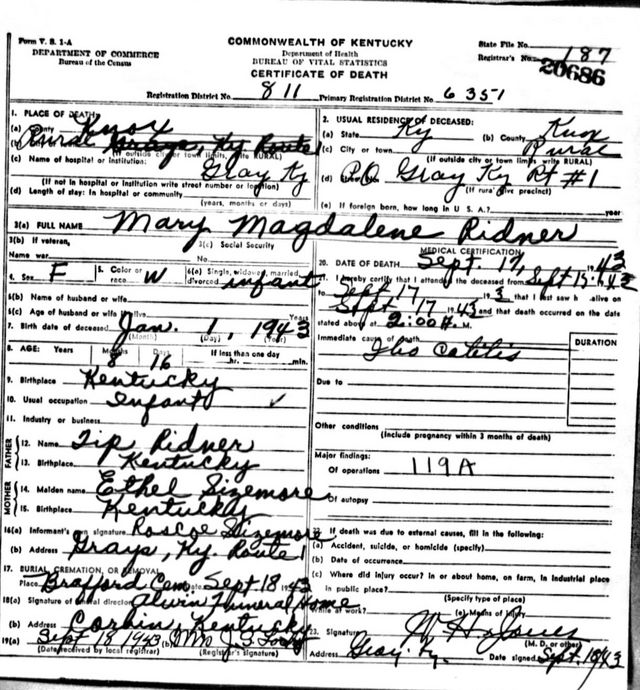 Form V. S. 1-A
DEPARTMENT OF COMMERCE
Bureau of the Census
COMMONWEALTH OF KENTUCKY
Department of Health
BUREAU OF VITAL STATISTICS
CERTIFICATE OF DEATH
State File No.
Registrar's No. 187
20686
Registration District No. 811 Primary Registration District No. 6351
1. PLACE OF DEATH
(a) County Knox
(b) Rural Grays, Ky Route 1
(If outside city or town limits, write RURAL)
(c) Name of hospital or institution: Gray Ky
(If not in hospital or institution write street number or location)
(d) Length of stay: In hospital or community
(years, months or days)
2. USUAL RESIDENCE OF DECEASED:
(a) State Ky (b) County Knox
(c) City or town Rural
(If outside city or town limits write RURAL)
(d) P.O. Gray Ky Rt #1
(If rural give precinct)
(e) If foreign born, how long in U. S. A.? year
3(a) FULL NAME Mary Magdalene Ridner
3(b) If veteran,
Name war
3(c) Social Security
No.
4. Sex F 5. Color or race W 6(a) Single, widowed, married, divorced infant
6(b) Name of husband or wife
6(c) Age of husband or wife if alive Years
7. Birth date of deceased Jan. 1, 1943
(Month) (Day) (Year)
8. AGE: Years Months Days If less than one day
8 16 hr. min.
9. Birthplace Kentucky
10. Usual occupation Infant
11. Industry or business
FATHER
12. Name Tip Ridner
13. Birthplace Kentucky
MOTHER
14. Maiden name Ethel Sizemore
15. Birthplace Kentucky
16(a) Informant's own signature Roscoe Sizemore
(b) Address Grays, Ky. Route 1
17. BURIAL, CREMATION, OR REMOVAL
Place Brafford Cem. Date Sept 18 1943
18(a) Signature of funeral director Funeral Home
(b) Address Corbin, Kentucky
19(a) Sept 18 1943 (b) Mrs
(Date received by local registrar) (Registrar's signature)
MEDICAL CERTIFICATION
20. DATE OF DEATH Sept. 17, 1943
21. I hereby certify that I attended the deceased from Sept 15 1943
to Sept 17 1943, that I last saw h alive on
Sept 17 1943 and that death occurred on the date
stated above at 2:00 A. M.
Immediate cause of death DURATION
Ilio Colitis
Due to
Other conditions
(Include pregnancy within 3 months of death)
Major findings:
Of operations 119A
Of autopsy
22. If death was due to external causes, fill in the following:
(a) Accident, suicide, or homicide (specify)
(b) Date of occurrence
(c) Where did injury occur? in or about home, on farm, in industrial place
in public place?
(Specify type of place)
While at work? (e) Means of injury
23. Signature W H Jones
(M. D. or other)
Address Gray, Ky. Date signed Sept. 18 43